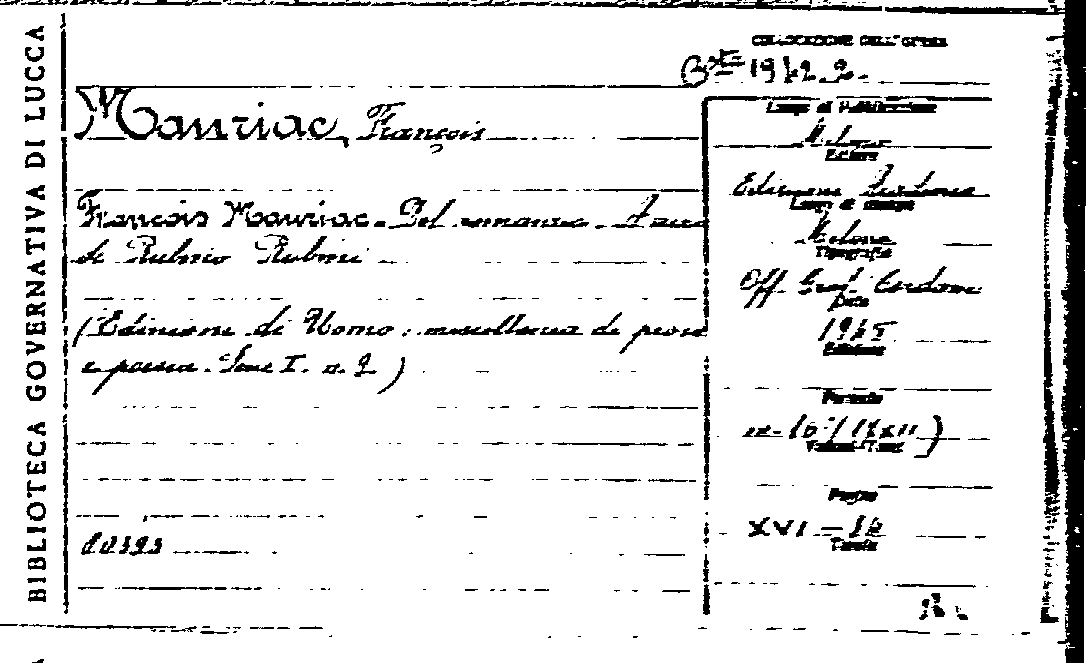 BIBLIOTECA GOVERNATIVA DI LUCCA
COLLOCAZIONE DELL'OPERA
Mauriac, François
Luogo di Pubblicazione
Milano
Editore
François Mauriac. Del romanzo.
di Rubino Rubini
Edizioni
Luogo di stampa
Milano
Tipografia
Off. Graf.
Data
(Edizione di Uomo: miscellanea di prosa
e poesia. Serie I. n. 2)
1945
Edizione
Formato
in-16°
Volumi-Tomi
Pagine
XVI -
Tavole